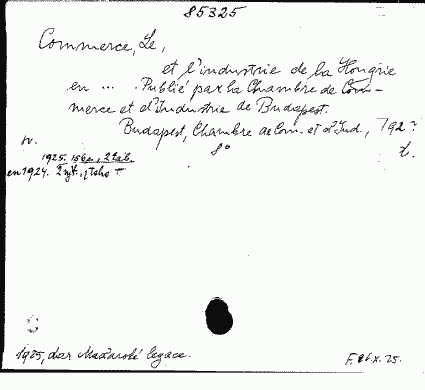 85325
Commerce, Le,
et l'industrie de la Hongrie
en ... . Publié par la Chambre de Com-
merce et d'Industrie de Budapest.
Budapest, Chambre de Com. et d'Ind., 192?
8°
1925. 156 s., 2 tab.
en 1924.
1925, dar Maďarské legace.
F. 26.X.25.